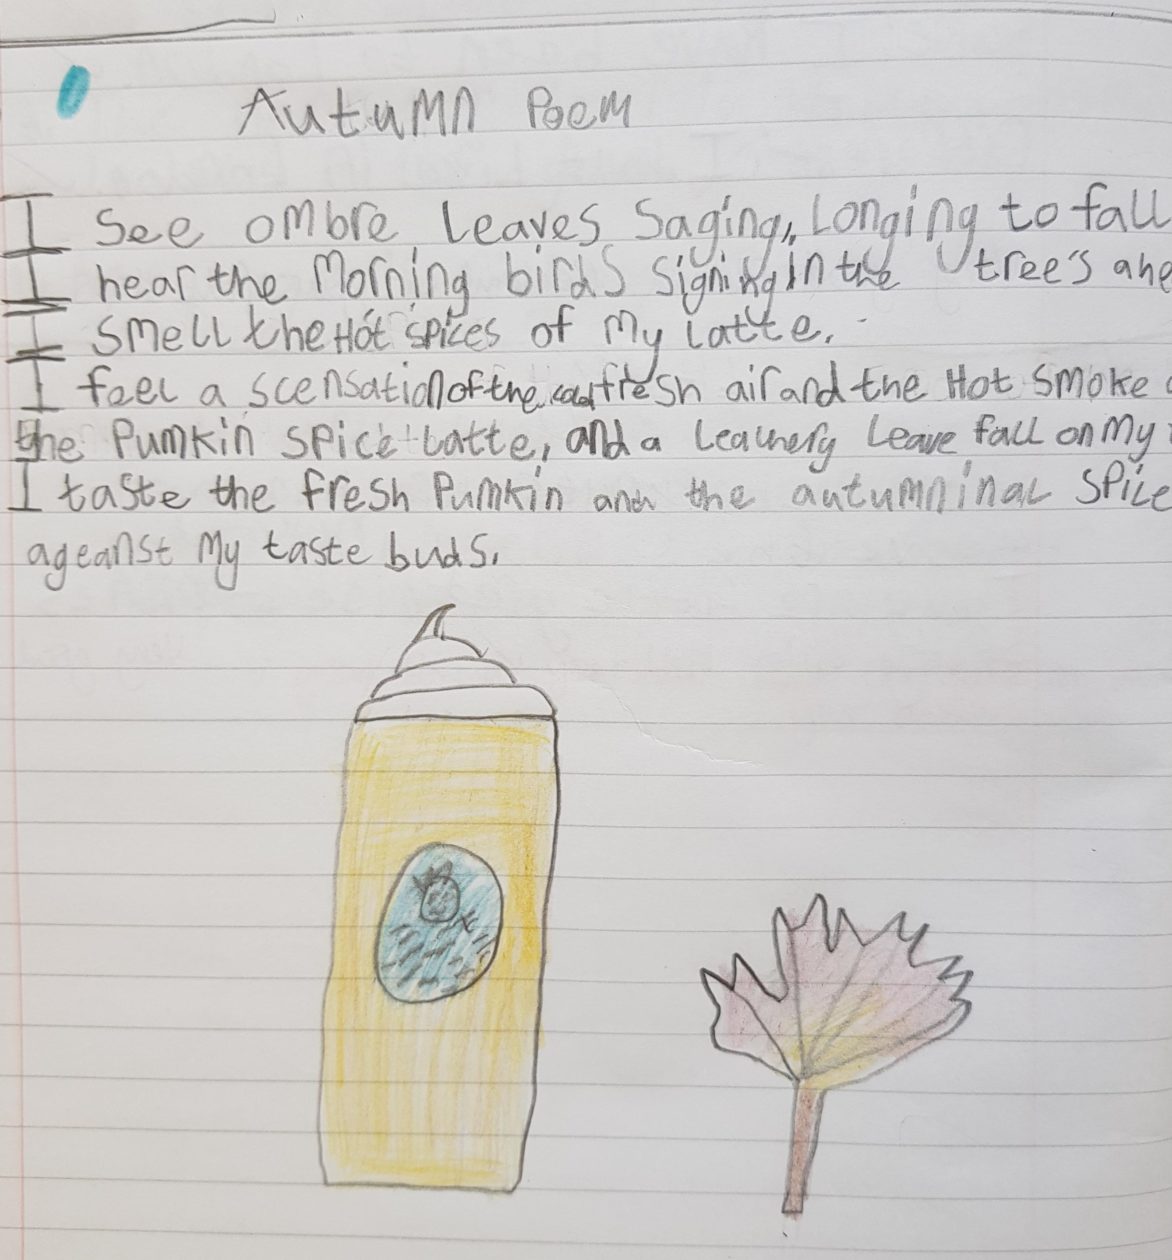 Autumn Poem
I see ombre leaves saging, longing to fall
I hear the Morning birds signing in the tree's ahe
I smell the Hot spices of My latte.
I feel a scensation of the fresh air and the Hot smoke
the Pumkin spice latte, and a leathery leave fall on My
I taste the fresh Pumkin and the autumninal spice
ageanst My taste buds.